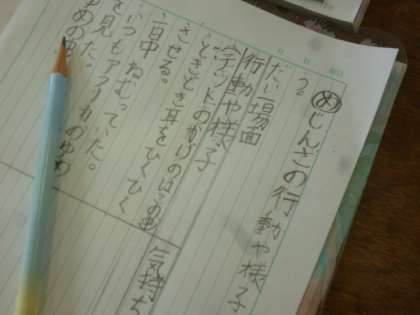 めじんざの行動や様子
う。
だい一場面
行動や様子
のかげのはこの
ときどき耳をひくひく
させる。
一日中ねむっていた。
いつもアフリカのゆめ
を見た。
ゆめの
気持ち